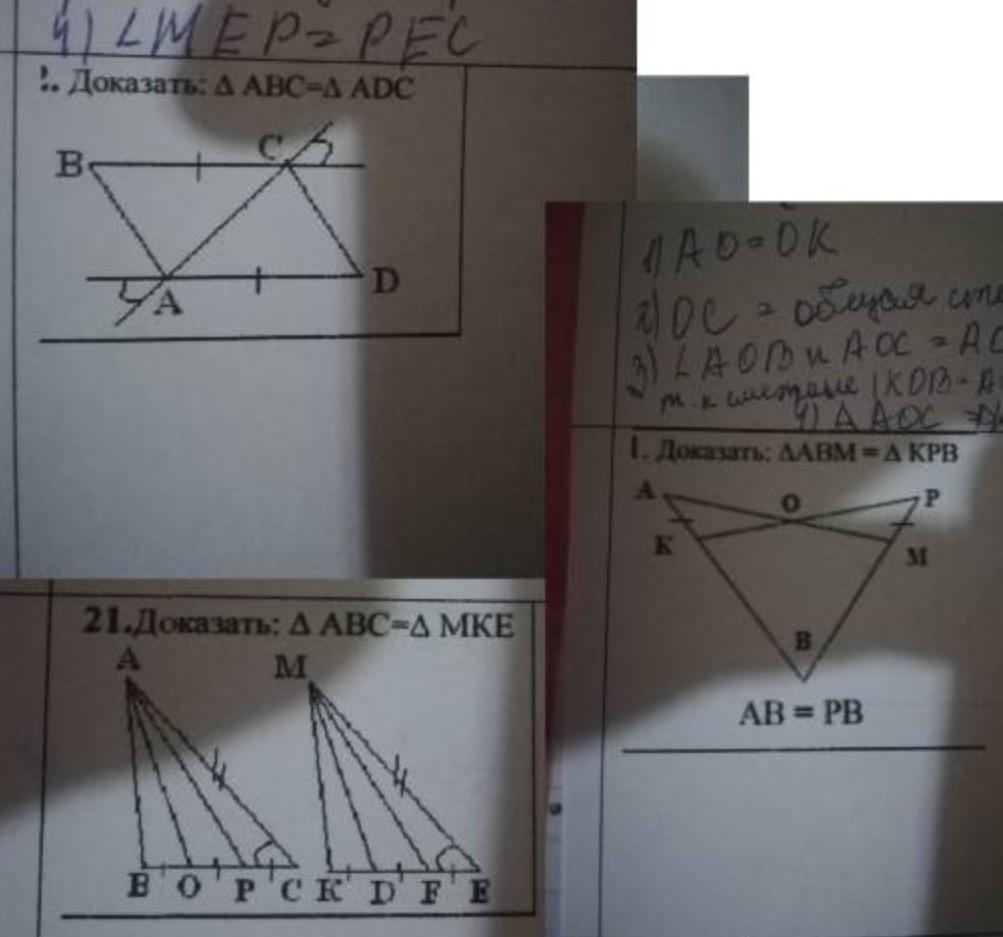 4) ∠MEP = PEC
Доказать: Δ ABC=Δ ADC
B C
A D
1) AO = OK
2) OC = общая
3) ∠AOB и AOC =
т.к смежные
4) Δ AOC
1. Доказать: ΔABM = Δ KPB
A O P
K M
B
AB = PB
21.Доказать: Δ ABC=Δ MKE
A M
B O P C K D F E